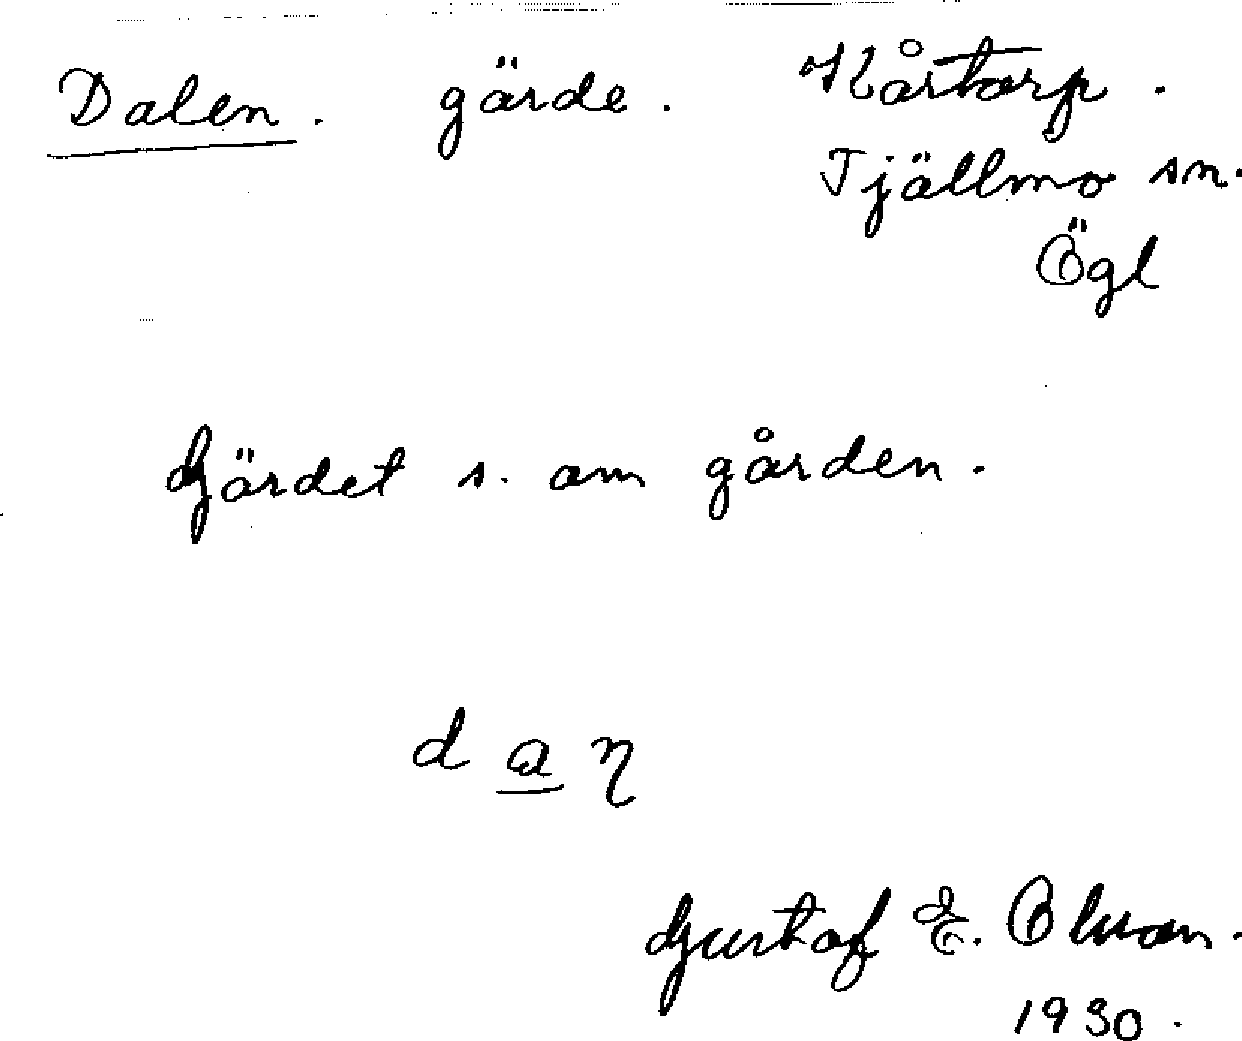 Dalen. gärde. Kårtorp.
Tjällmo sn.
Ögl
Gärdet s. om gården.
d a η
Gustaf E. Olsson.
1930.